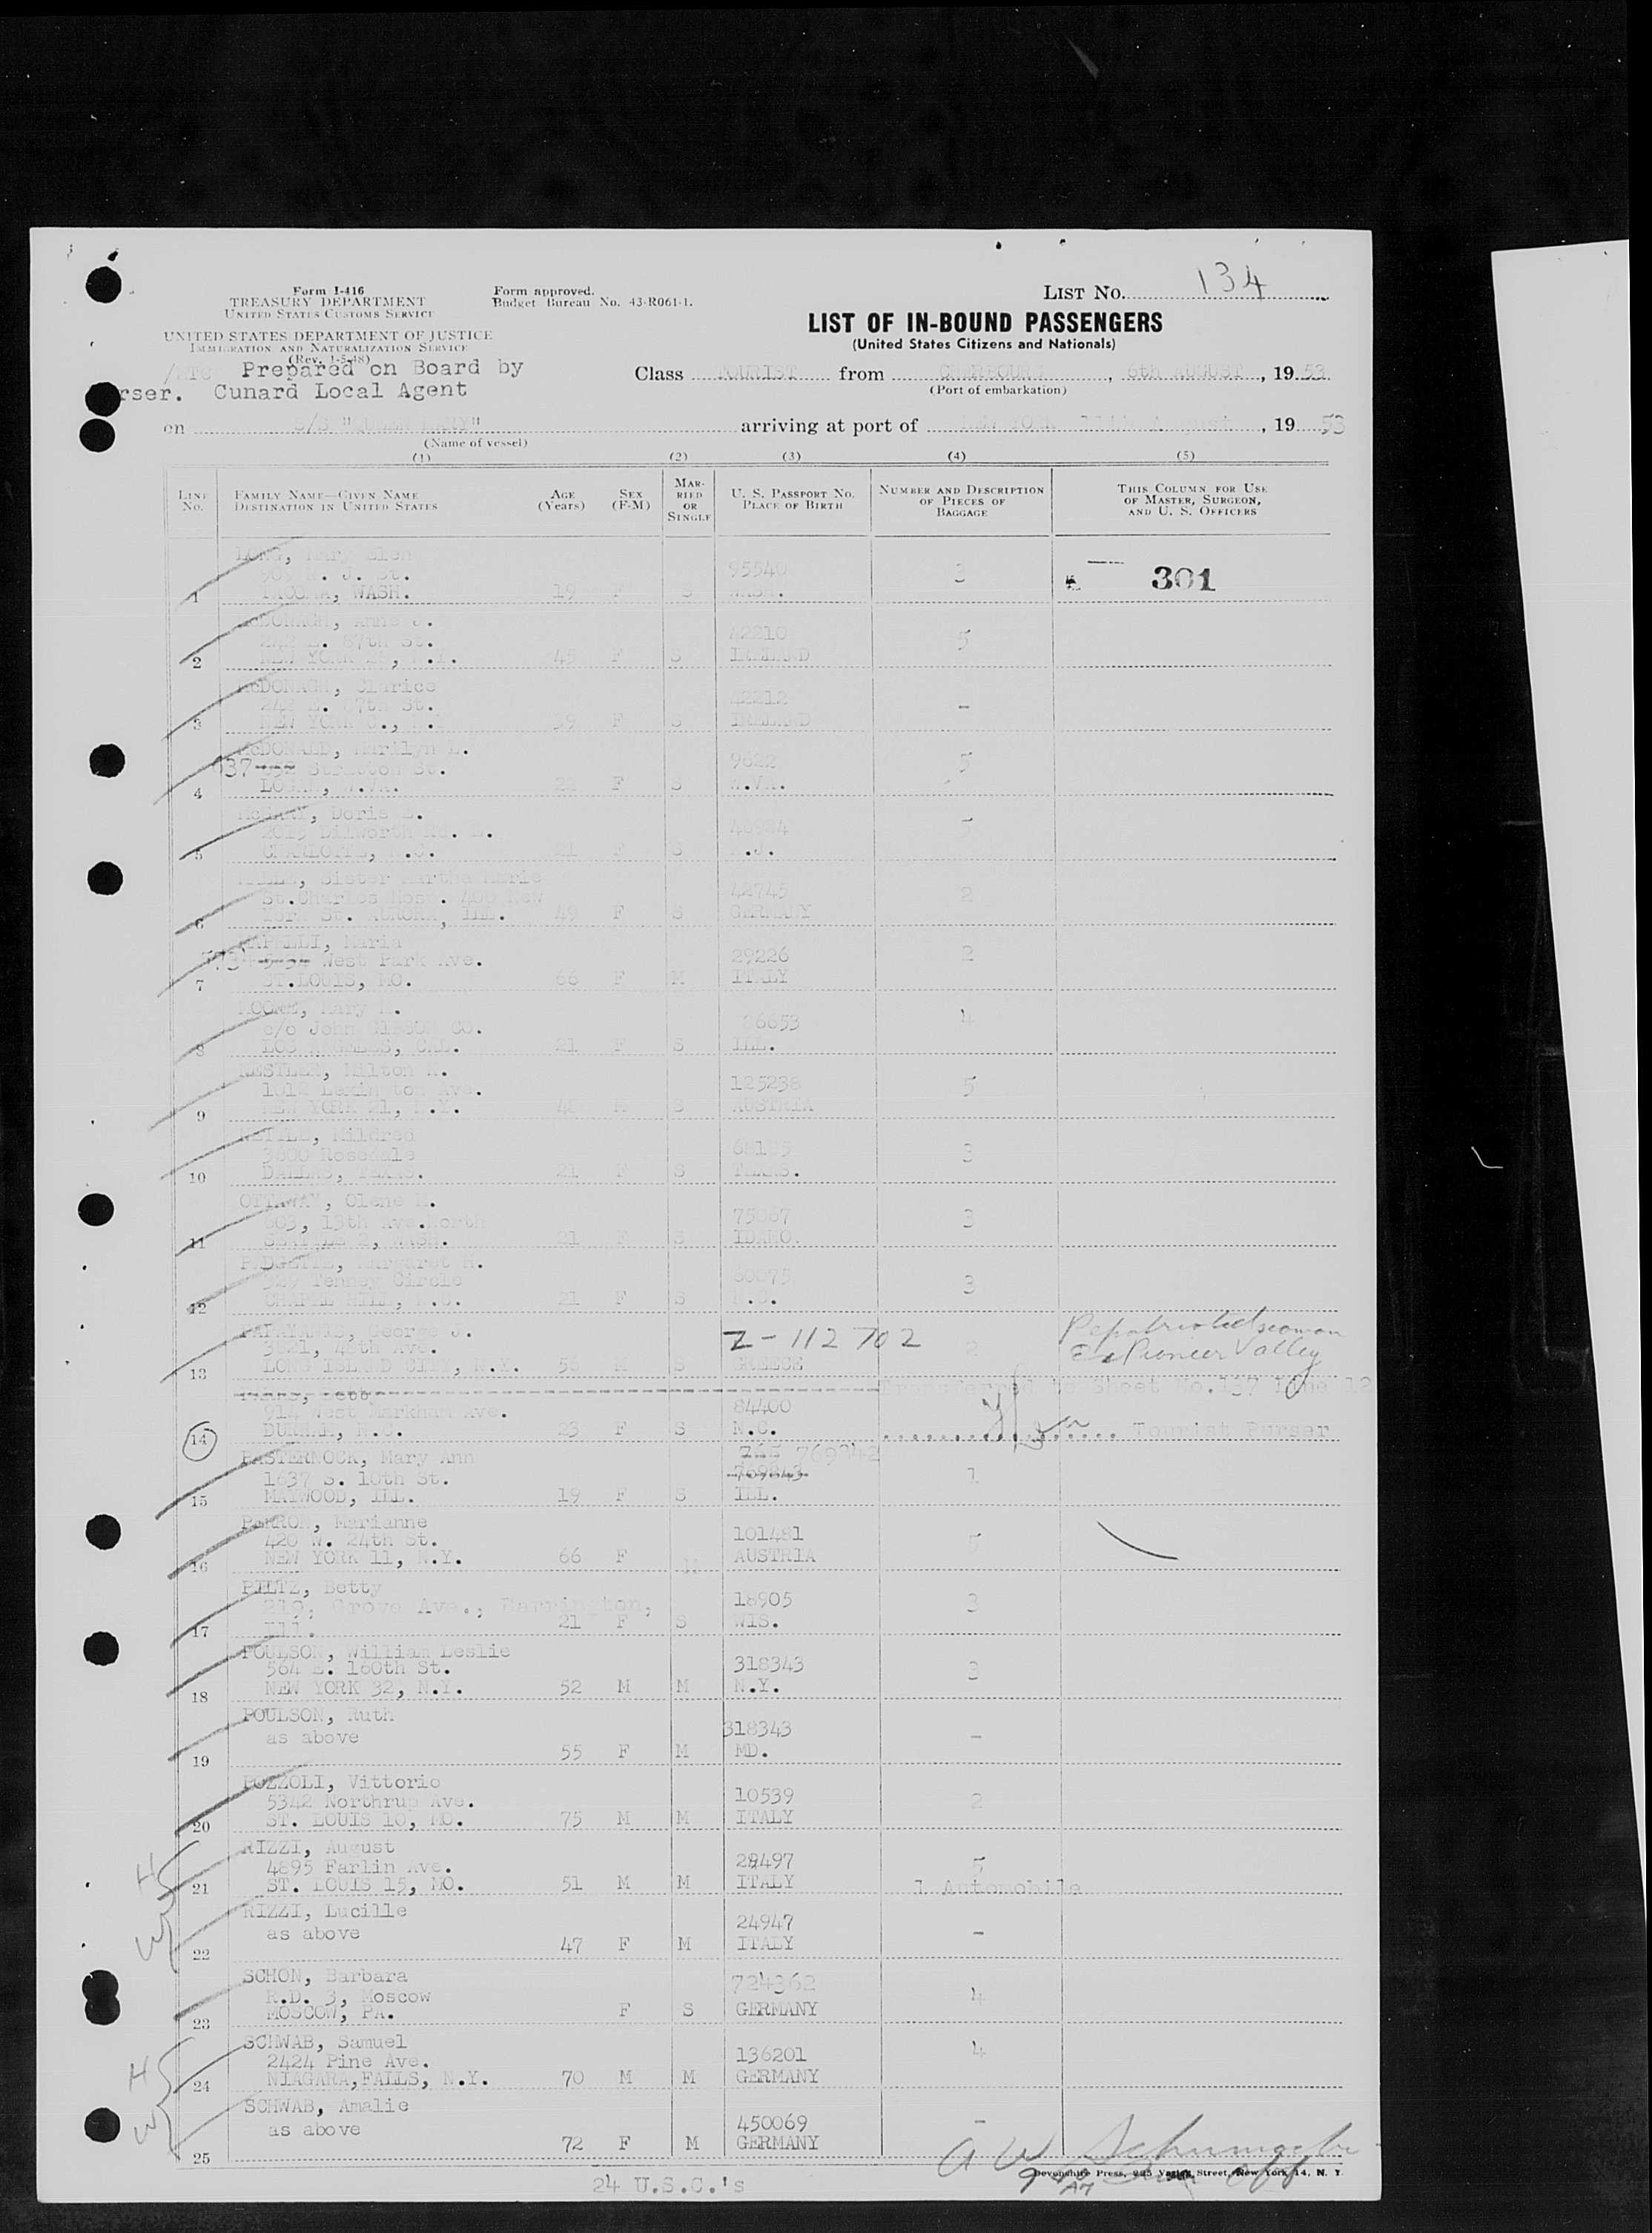 LIST NO. 134
Form I-416
TREASURY DEPARTMENT
UNITED STATES CUSTOMS SERVICE
Form approved.
Budget Bureau No. 43-R061-1.
UNITED STATES DEPARTMENT OF JUSTICE
IMMIGRATION AND NATURALIZATION SERVICE
(Rev. 1-5-48)
LIST OF IN-BOUND PASSENGERS
(United States Citizens and Nationals)
Prepared on Board by
rser. Cunard Local Agent
Class TOURIST from CHERBOURG, 6th AUGUST, 19 53
(Port of embarkation)
on S/S "QUEEN MARY" arriving at port of NEW YORK 11th August, 19 53
(Name of vessel)
(1) (2) (3) (4) (5)
LINE NO. FAMILY NAME—GIVEN NAME DESTINATION IN UNITED STATES AGE (Years) SEX (F-M) MARRIED OR SINGLE U. S. PASSPORT NO. PLACE OF BIRTH NUMBER AND DESCRIPTION OF PIECES OF BAGGAGE THIS COLUMN FOR USE OF MASTER, SURGEON, AND U. S. OFFICERS
LONG, Mary
J. St. 95540 3 301
1 TACOMA, WASH. 19 F S WASH.
McDONAGH, Anne J.
87th St. 42210 5
2 NEW YORK N.Y. 45 F S IRELAND
McDONAGH, Clarice
87th St. 42212 -
3 NEW YORK 39 F S IRELAND
McDONALD, Marilyn E.
637 Stratton St. 9622 5
4 LOGAN, W.VA. 22 F S W.VA.
Doris E.
2015 Dilworth Rd. E. 5
5 CHARLOTTE, N.C. 21 F S N.J.
Sister Martha Marie
St.Charles Hosp. 400 New 42745 2
6 St. AURORA, ILL. 49 F S GERMANY
Maria
West Park Ave. 29226 2
7 ST.LOUIS, MO. 66 F M ITALY
MOORE, Mary
c/o John CO. 86653 4
8 LOS ANGELES, CAL. 21 F S ILL.
NESTLER, Milton
1012 Lexington Ave. 125238 5
9 NEW YORK 21, N.Y. S AUSTRIA
Mildred
3600 Rosedale 3
10 DALLAS, TEXAS. 21 F S TEXAS.
OTTAWAY, Olene
603, 13th Ave.North 75067 3
11 SEATTLE 2, WASH. 21 F S IDAHO.
PADGETTE, Margaret H.
329 Tenney Circle 60075 3
12 CHAPEL HILL, N.C. 21 F S N.C.
George J. Z-112702 Repatriated seaman
3821, 48th Ave. 2 Ex Pioneer Valley
13 LONG ISLAND CITY, N.Y. 56 M S GREECE
Betty Transferred to Sheet No.137 line 12
914 West Markham Ave. 84400
14 DURHAM, N.C. 23 F S N.C. Tourist Purser
PASTERNOCK, Mary Ann 765 769842
1637 S. 10th St. 769843 1
15 MAYWOOD, ILL. 19 F S ILL.
PERRON, Marianne
420 W. 24th St. 101481 5
16 NEW YORK 11, N.Y. 66 F M AUSTRIA
PILTZ, Betty
219, Grove Ave., Barrington, 18905 3
17 Ill. 21 F S WIS.
POULSON, William Leslie
564 E. 160th St. 318343 3
18 NEW YORK 32, N.Y. 52 M M N.Y.
POULSON, Ruth
as above 318343 -
19 55 F M MD.
POZZOLI, Vittorio
5342 Northrup Ave. 10539 2
20 ST. LOUIS 10, MO. 75 M M ITALY
RIZZI, August
H 4895 Farlin Ave. 29497 5
21 ST. LOUIS 15, MO. 51 M M ITALY 1 Automobile
RIZZI, Lucille
W as above 24947 -
22 47 F M ITALY
SCHON, Barbara
R.D. 3, Moscow 724362 4
23 MOSCOW, PA. F S GERMANY
SCHWAB, Samuel
H 2424 Pine Ave. 136201 4
24 NIAGARA,FALLS, N.Y. 70 M M GERMANY
SCHWAB, Amalie
W as above 450069 -
25 72 F M GERMANY
A W Schumacher
Devonshire Press, 225 Varick Street, New York 14, N. Y.
24 U.S.C.'s